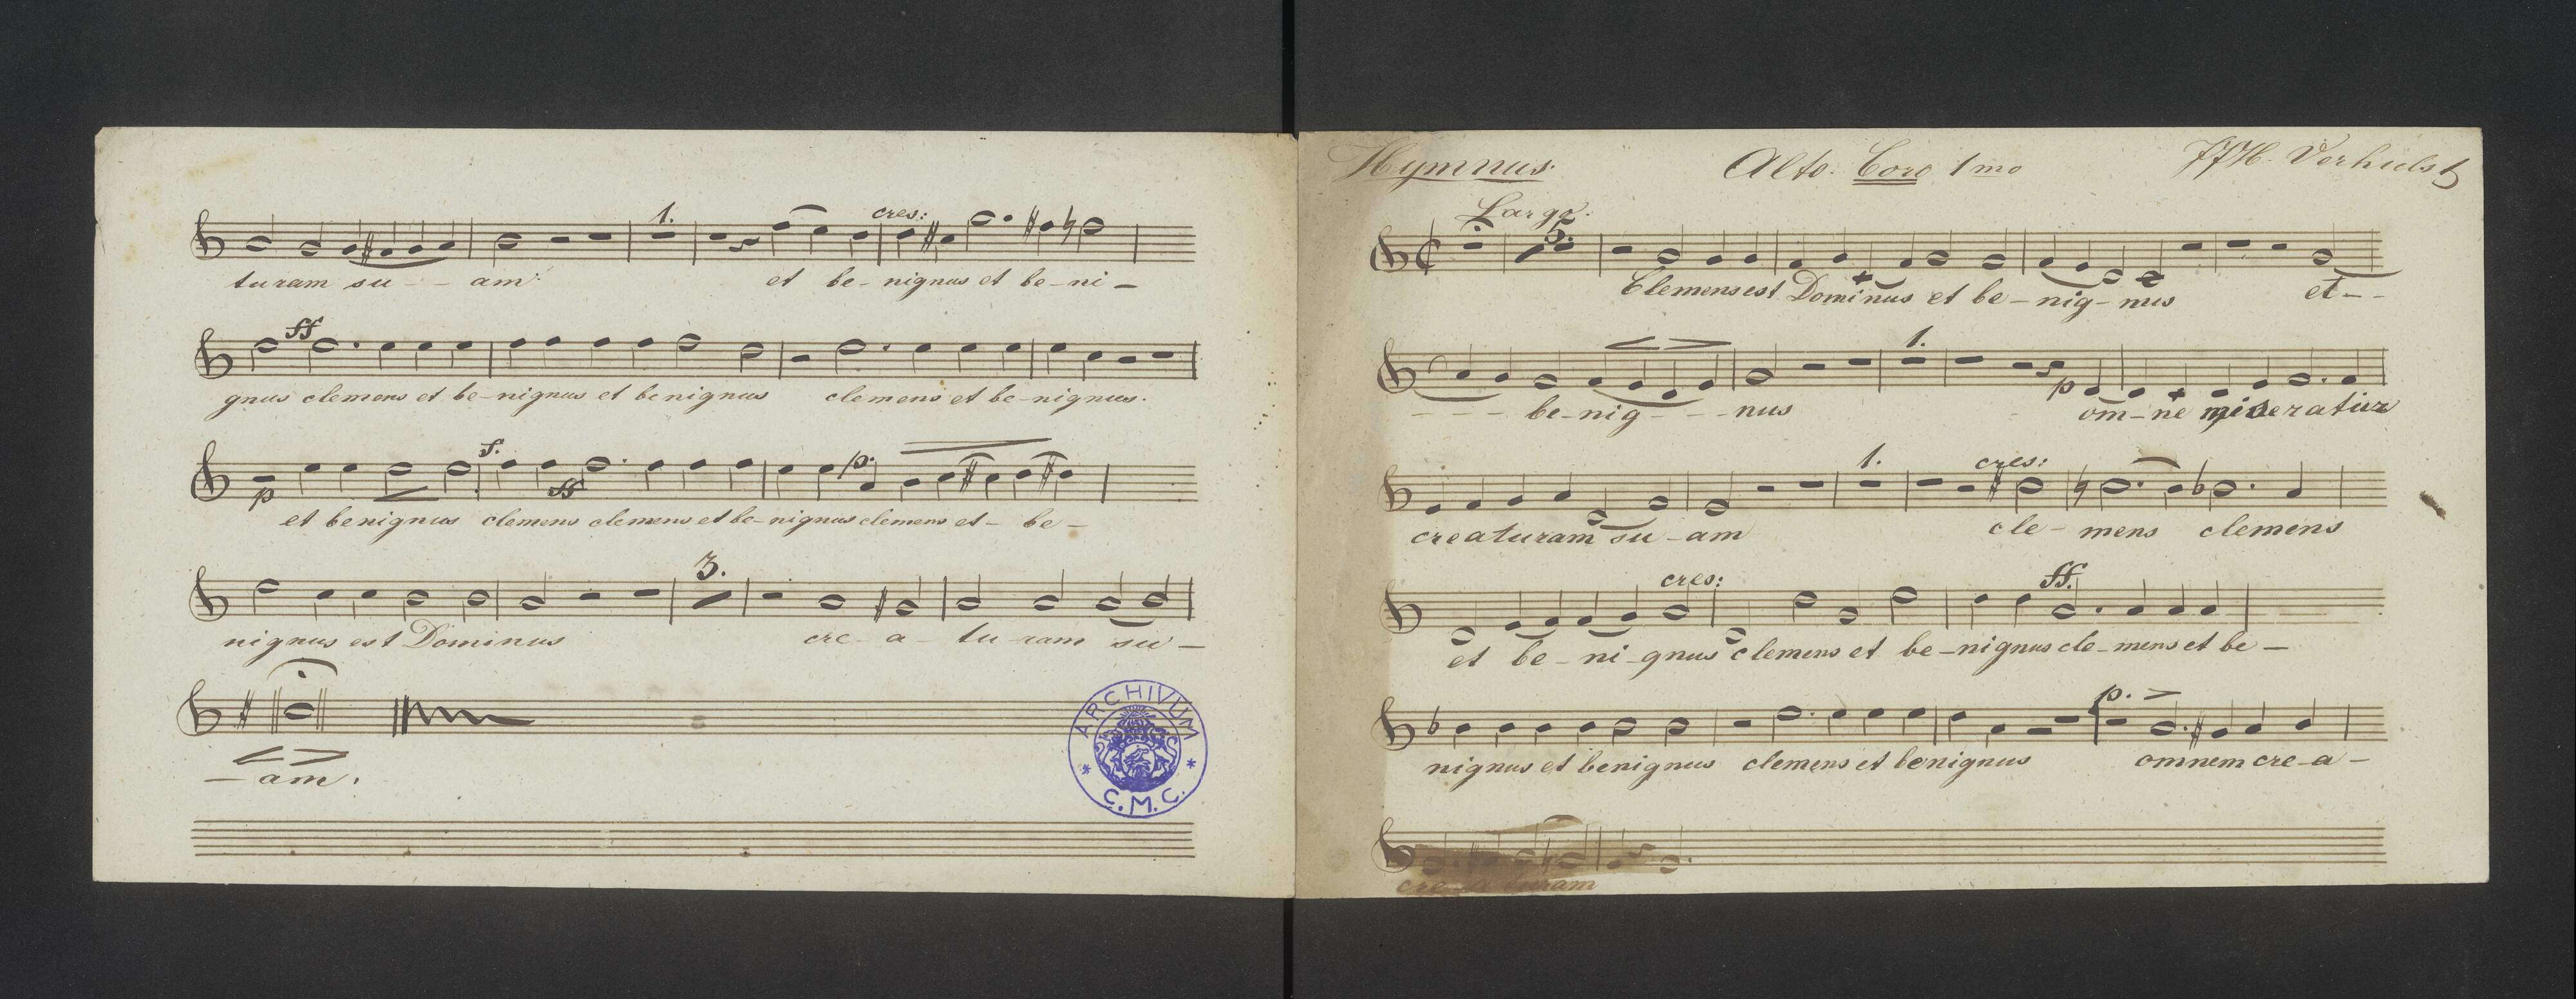 1.
cres:
turam su - - am: et be - nignus et be - ni -
ff
gnus clemens et be - nignus et benignus clemens et be - nignus.
f.
p ff p.
et benignus clemens clemens et be - nignus clemens et - be -
3.
nignus est Dominus cre - a - tu - ram su -
- am.
ARCHIVUM
* *
C.M.C.
Hymnus. Alto. Coro 1mo JJH. Verhulst
Largo.
Clemens est Dominus et be - nig - nus et - -
1.
p
- - - be - nig - - - nus om - ne miseratur
1. cres:
creaturam su - am cle - mens clemens
cres: ff.
et be - ni - gnus clemens et be - nignus cle - mens et be -
p.
nignus et benignus clemens et benignus omnem cre - a -